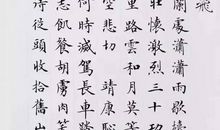 飛
闌處瀟瀟雨歇
壯懷激烈三十功
里路雲和月莫等
空悲切 靖康恥
何時滅駕長車踏
志飢餐胡虜肉笑
待從頭收拾舊山